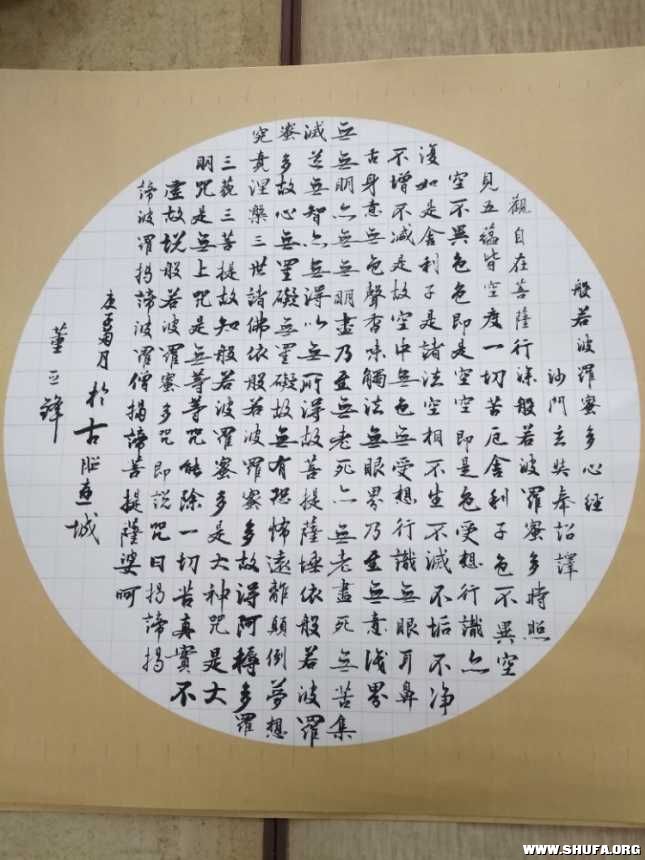 般若波羅蜜多心經
沙門玄奘奉詔譯
觀自在菩薩行深般若波羅蜜多時照
見五蘊皆空度一切苦厄舍利子色不異空
空不異色色即是空空即是色受想行識亦
復如是舍利子是諸法空相不生不滅不垢不净
不增不減是故空中無色無受想行識無眼耳鼻
舌身意無色聲香味觸法無眼界乃至無意識界
無無明亦無無明盡乃至無老死亦無老盡死無苦集
滅道無智亦無得以無所得故菩提薩埵依般若波羅
蜜多故心無罣礙無罣礙故無有恐怖遠離顛倒夢想
究竟涅槃三世諸佛依般若波羅蜜多故得阿耨多羅
三藐三菩提故知般若波羅蜜多是大神咒是大
明咒是無上咒是無等等咒能除一切苦真實不
虛故說般若波羅蜜多咒即說咒曰揭諦揭
諦波羅揭諦波羅僧揭諦菩提薩婆呵
月於古城
董鋒
WWW.SHUFA.ORG